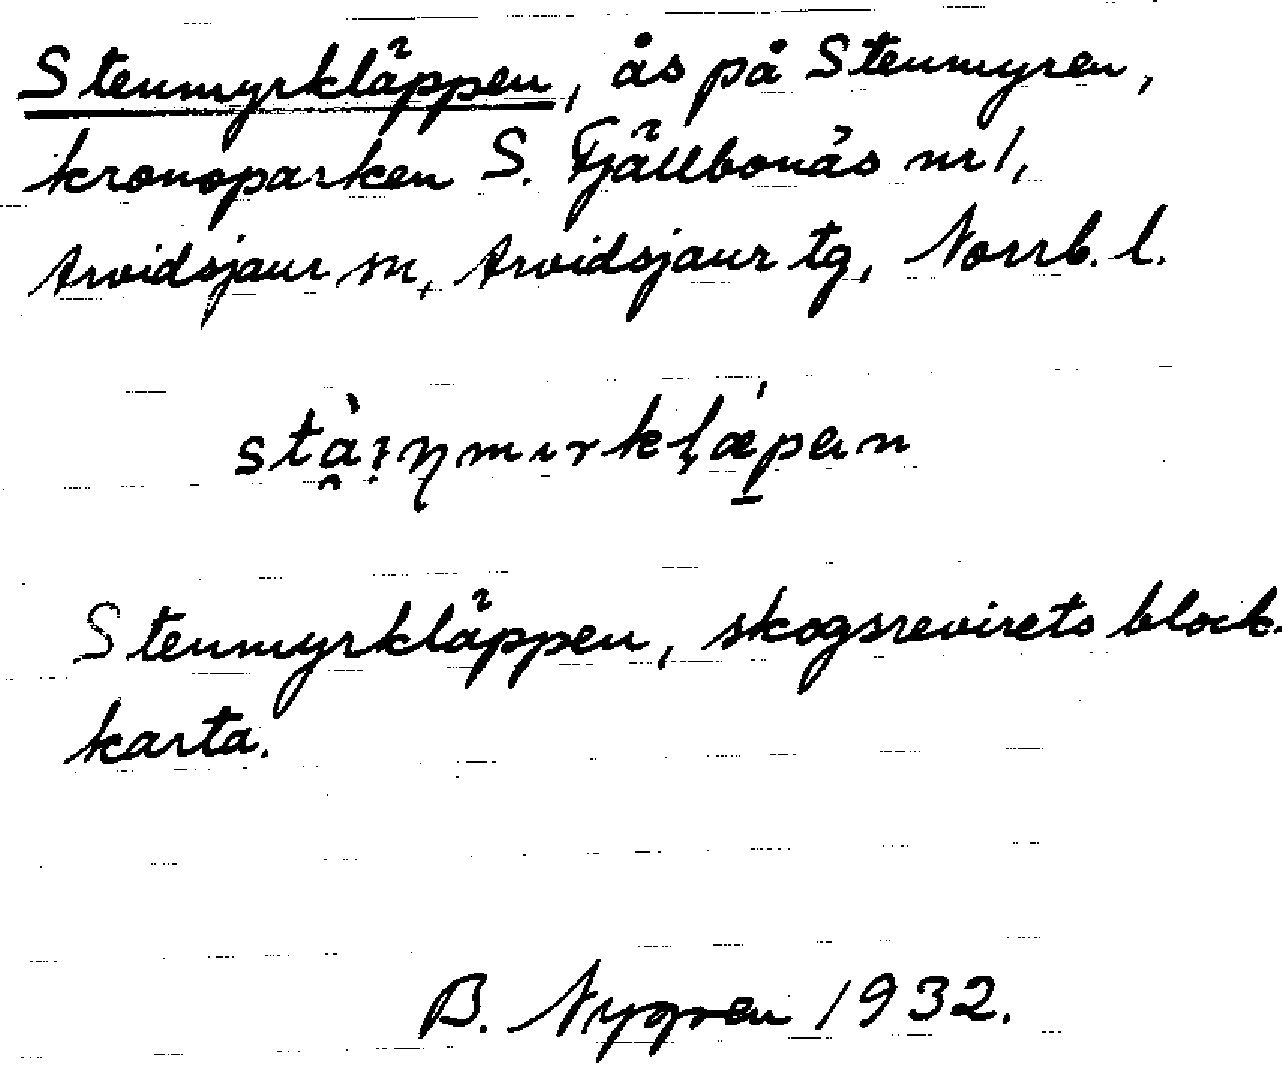 Stenmyrkläppen, ås på Stenmyren,
kronoparken S. Fjällbonäs nr 1,
Arvidsjaur sn, Arvidsjaur tg, Norrb. l.
Stenmyrkläppen, skogsrevirets block-
karta.
B. Nygren 1932.